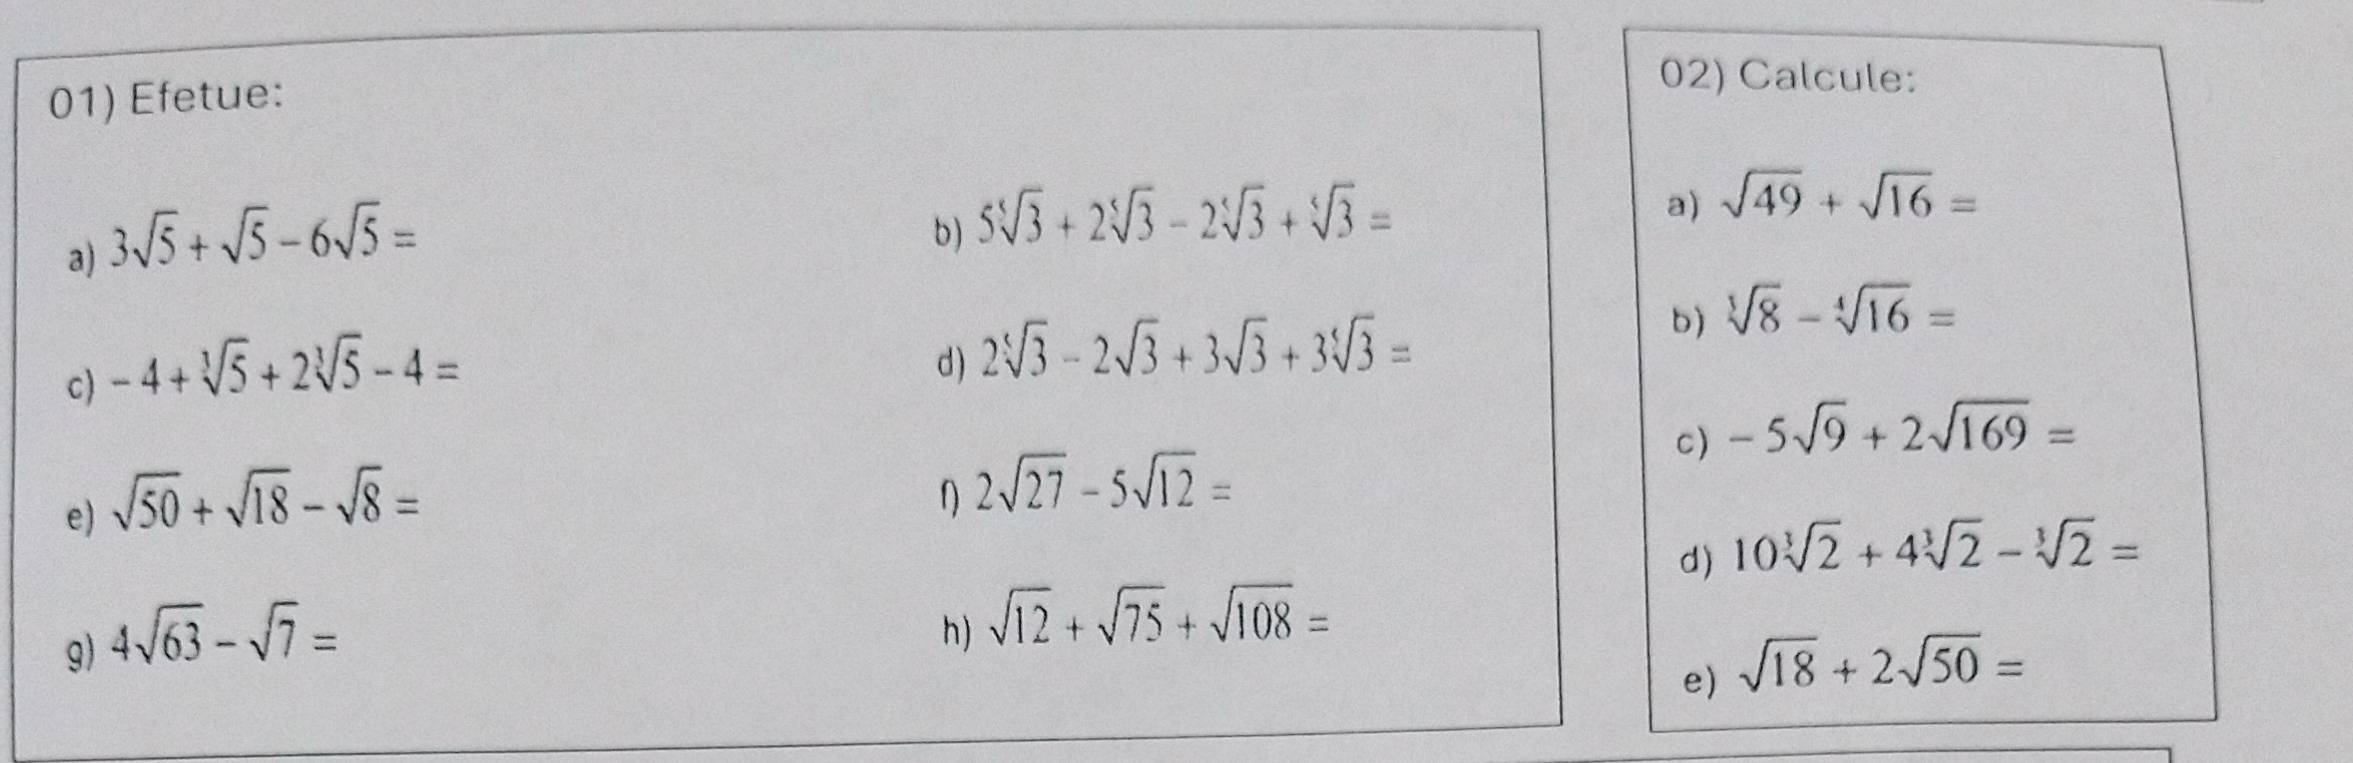 01) Efetue:
a) 3√5 + √5 − 6√5 =
b) 5⁵√3 + 2⁵√3 − 2⁵√3 + ⁵√3 =
c) − 4 + ³√5 + 2³√5 − 4 =
d) 2⁵√3 − 2√3 + 3√3 + 3⁵√3 =
e) √50 + √18 − √8 =
f) 2√27 − 5√12 =
g) 4√63 − √7 =
h) √12 + √75 + √108 =
02) Calcule:
a) √49 + √16 =
b) ³√8 − ⁴√16 =
c) − 5√9 + 2√169 =
d) 10³√2 + 4³√2 − ³√2 =
e) √18 + 2√50 =